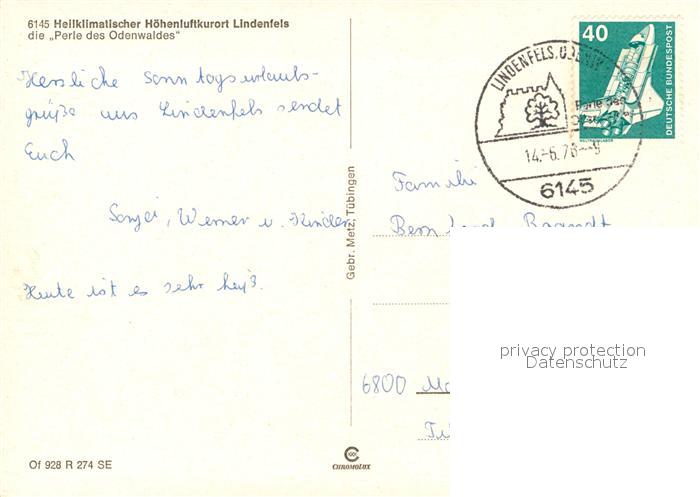 6145 Heilklimatischer Höhenluftkurort Lindenfels
die „Perle des Odenwaldes"
Herzliche Sonntagsurlaubs-
grüße aus Lindenfels sendet
Euch
Werner u. Kinder
Heute ist es sehr heiß.
Of 928 R 274 SE
Gebr. Metz, Tübingen
CHROMOLUX
40
DEUTSCHE BUNDESPOST
WELTRAUMLABOR
LINDENFELS, ODENW
Perle des
14.-6.76--9
6145
Familie
Brandt
6800
privacy protection
Datenschutz